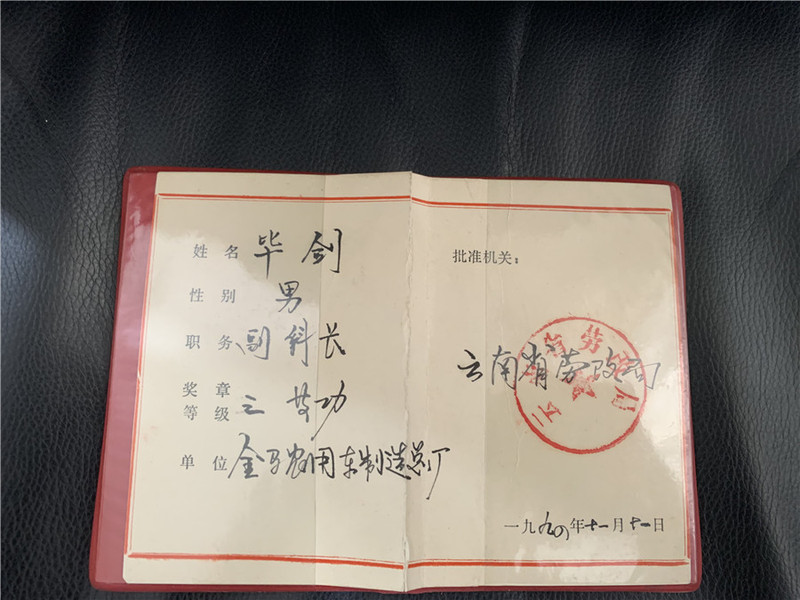 姓名 毕剑
性别 男
职务 副科长
奖章
等级 三等功
单位 金马农用车制造总厂
批准机关：
云南省劳改局
云南省劳改局
一九九〇年十一月十一日